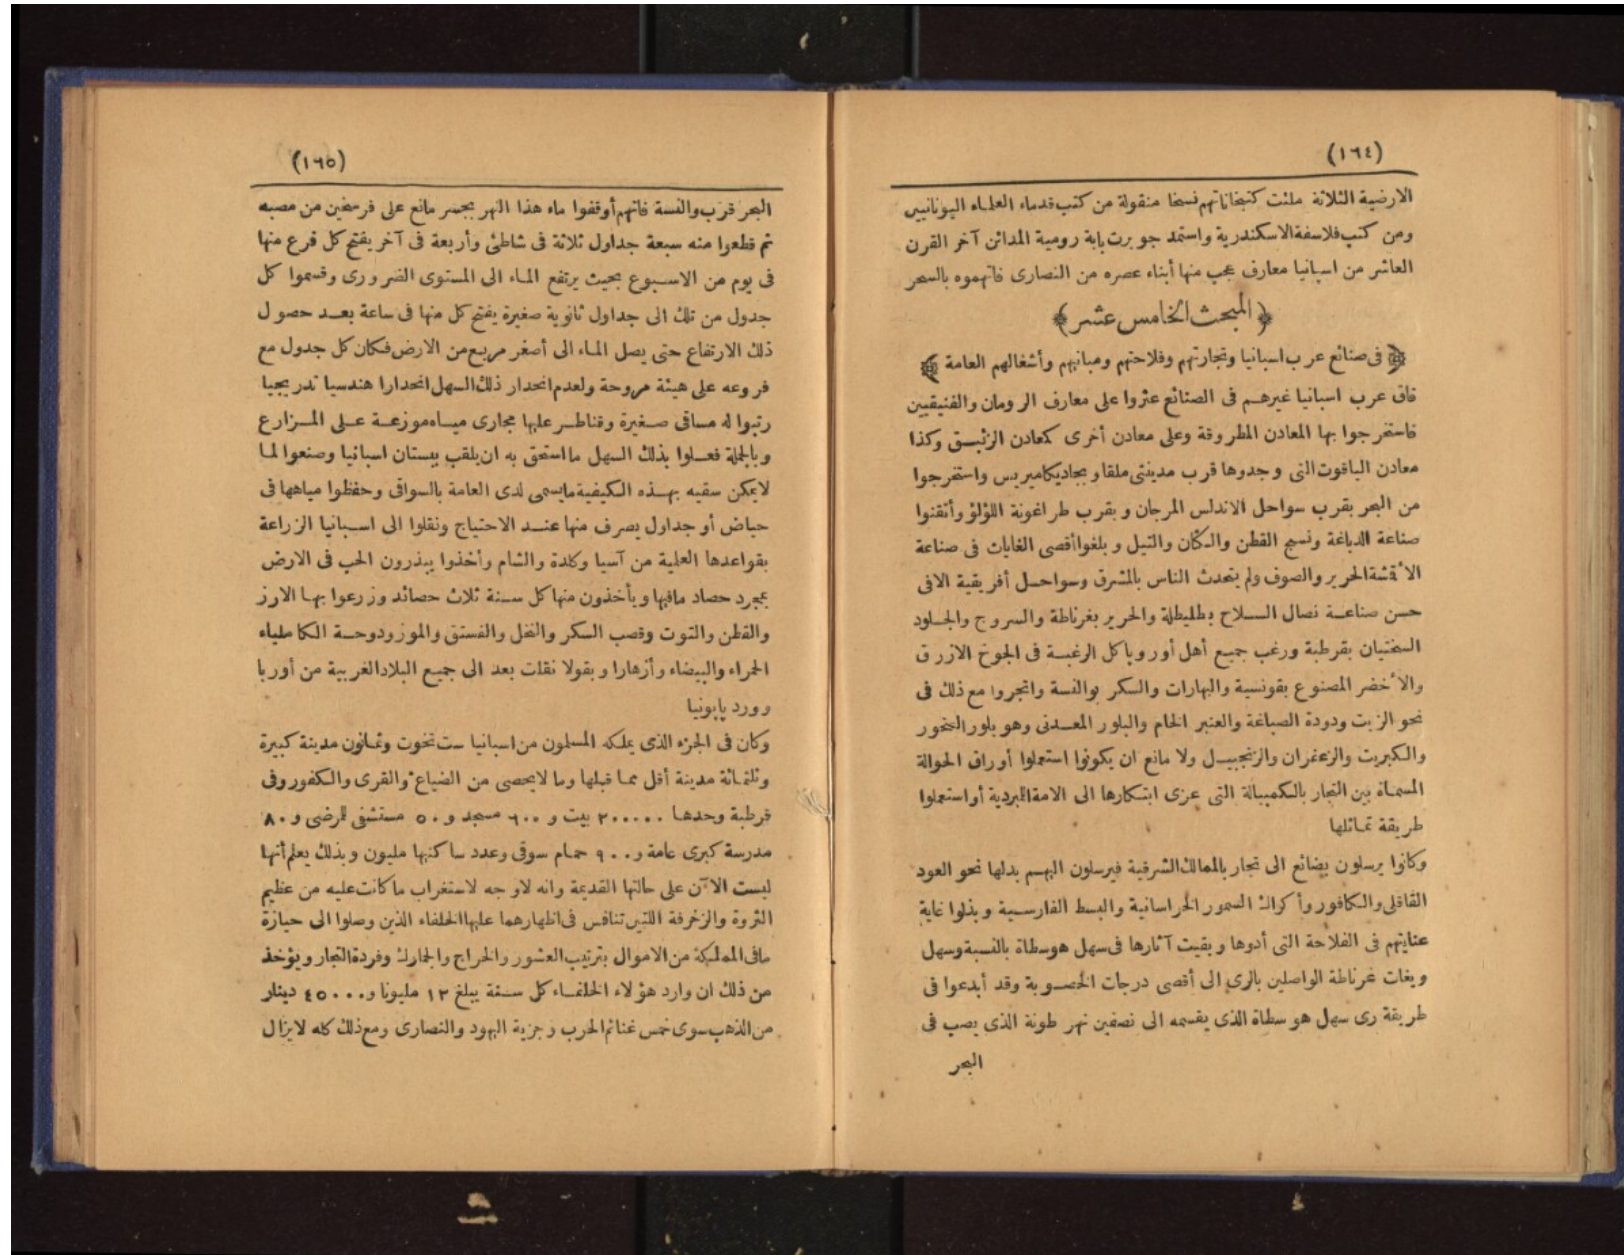 (١٦٤)
الارضية الثلاثة ملئت كتبخاناتهم نسخا منقولة من كتب قدماء العلماء اليونانيين
ومن كتب فلاسفة الاسكندرية واستمد جو برت بابة رومية المدائن آخر القرن
العاشر من اسبانيا معارف عجب منها أبناء عصره من النصارى فاتهموه بالسحر
﴿المبحث الخامس عشر﴾
﴿فى صنائع عرب اسبانيا وتجارتهم وفلاحتهم ومبانيهم وأشغالهم العامة﴾
فاق عرب اسبانيا غيرهم فى الصنائع عثروا على معارف الرومان والفنيقيين
فاستخرجوا بها المعادن المطروقة وعلى معادن أخرى كمعادن الزئبق وكذا
معادن الياقوت التى وجدوها قرب مدينتى ملقا و بجاديكاميربس واستخرجوا
من البحر بقرب سواحل الاندلس المرجان و بقرب طراغونة اللؤلؤ وأتقنوا
صناعة الدباغة ونسج القطن والكتان والتيل و بلغوا أقصى الغايات فى صناعة
الأقشة الحرير والصوف ولم يتحدث الناس بالمشرق وسواحل أفريقية الافى
حسن صناعة نصال السلاح بطليطلة والحرير بغرناطة والسروج والجلود
السختيان بقرطبة ورغب جميع أهل أوروبا كل الرغبة فى الجوخ الازرق
والأخضر المصنوع بقونسية والبهارات والسكر بوالنسة واتجروا مع ذلك فى
نحو الزيت ودودة الصباغة والعنبر الخام والبلور المعدنى وهو بلور الصخور
والكبريت والزعفران والزنجبيل ولا مانع ان يكونوا استعملوا أوراق الحوالة
المسماة بين التجار بالكمبيالة التى عزى ابتكارها الى الامة اللمبردية أواستعملوا
طريقة تماثلها
وكانوا يرسلون بضائع الى تجار بالممالك الشرقية فيرسلون اليهم بدلها نحو العود
القاقلى والكافور وأكراك السمور الخراسانية والبسط الفارسية و بذلوا غاية
عنايتهم فى الفلاحة التى أدوها و بقيت آثارها فى سهل هوسطاة بالنسبة وسهل
ويغات غرناطة الواصلين بالرى الى أقصى درجات الخصوبة وقد أبدعوا فى
طريقة رى سهل هوسطاة الذى يقسمه الى نصفين نهر طونة الذى يصب فى
البحر
(١٦٥)
البحر قرب والنسة فانهم أوقفوا ماء هذا النهر بجسر مانع على فرسخين من مصبه
ثم قطعوا منه سبعة جداول ثلاثة فى شاطئ وأربعة فى آخر يفتح كل فرع منها
فى يوم من الاسبوع بحيث يرتفع الماء الى المستوى الضرورى وقسموا كل
جدول من تلك الى جداول ثانوية صغيرة يفتح كل منها فى ساعة بعد حصول
ذلك الارتفاع حتى يصل الماء الى أصغر مربع من الارض فكان كل جدول مع
فروعه على هيئة مروحة ولعدم انحدار ذلك السهل انحدارا هندسيا تدريجيا
رتبوا له مساقى صغيرة وقناطر عليها مجارى مياه موزعة على المزارع
وبالجلة فعلوا بذلك السهل ما استحق به ان يلقب ببستان اسبانيا وصنعوا لما
لايمكن سقيه بهذه الكيفية مايسمى لدى العامة بالسواقى وحفظوا مياهها فى
حياض أو جداول يصرف منها عند الاحتياج ونقلوا الى اسبانيا الزراعة
بقواعدها العلمية من آسيا وكلدة والشام وأخذوا يبذرون الحب فى الارض
بمجرد حصاد مافيها و يأخذون منها كل سنة ثلاث حصائد وزرعوا بها الارز
والقطن والتوت وقصب السكر والنخل والفستق والموز ودوحة الكاملياء
الحمراء والبيضاء وأزهارا و بقولا نقلت بعد الى جميع البلاد الغربية من أوربا
وورد يابونيا
وكان فى الجزء الذى يملكه المسلمون من اسبانيا ست تخوت وثمانون مدينة كبيرة
وثلثمائة مدينة أقل مما قبلها وما لا يحصى من الضياع والقرى والكفور وفى
قرطبة وحدها ٢٠٠٠٠٠ بيت و ٦٠٠ مسجد و ٥٠ مستشفى للمرضى و ٨٠
مدرسة كبرى عامة و ٩٠٠ حمام سوقى وعدد ساكنيها مليون وبذلك يعلم أنها
ليست الآن على حالتها القديمة وانه لاوجه لاستغراب ما كانت عليه من عظيم
الثروة والزخرفة اللتين تنافس فى اظهارهما عليها الخلفاء الذين وصلوا الى حيازة
مافى المملكة من الاموال بترتيب العشور والخراج والجمارك وفردة التجار ويؤخذ
من ذلك ان وارد هؤلاء الخلفاء كل سنة يبلغ ١٢ مليونا و ٤٥٠٠٠ دينار
من الذهب سوى خمس غنائم الحرب وجزية اليهود والنصارى ومع ذلك كله لايزال